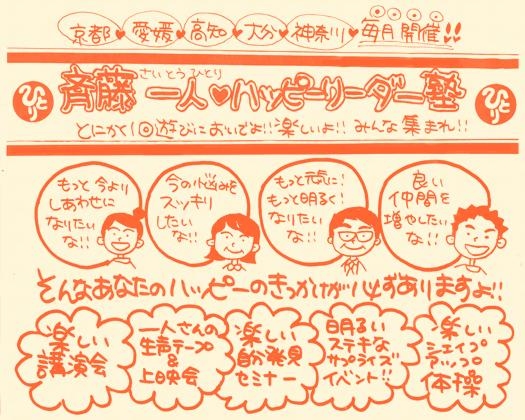 京都♥愛媛♥高知♥大分♥神奈川♥毎月開催!!
さいとうひとり
斉藤一人♥ハッピーリーダー塾
ひとり
ひとり
とにかく1回遊びにおいでよ!!楽しいよ!!みんな集まれ!!
もっと今より
しあわせに
なりたい
な!!
今の小悩みを
スッキリ
したい
な!!
もっと元気に!
もっと明るく!
なりたい
な!!
良い
仲間を
増やしたい
な!!
そんなあなたのハッピーのきっかけが必ずありますよ!!
楽しい
講演会
一人さんの
生声テープ
&
上映会
楽しい
自分発見
セミナー
明るい
ステキな
サプライズ
イベント!!
楽しい
シェイプ
アップ
体操